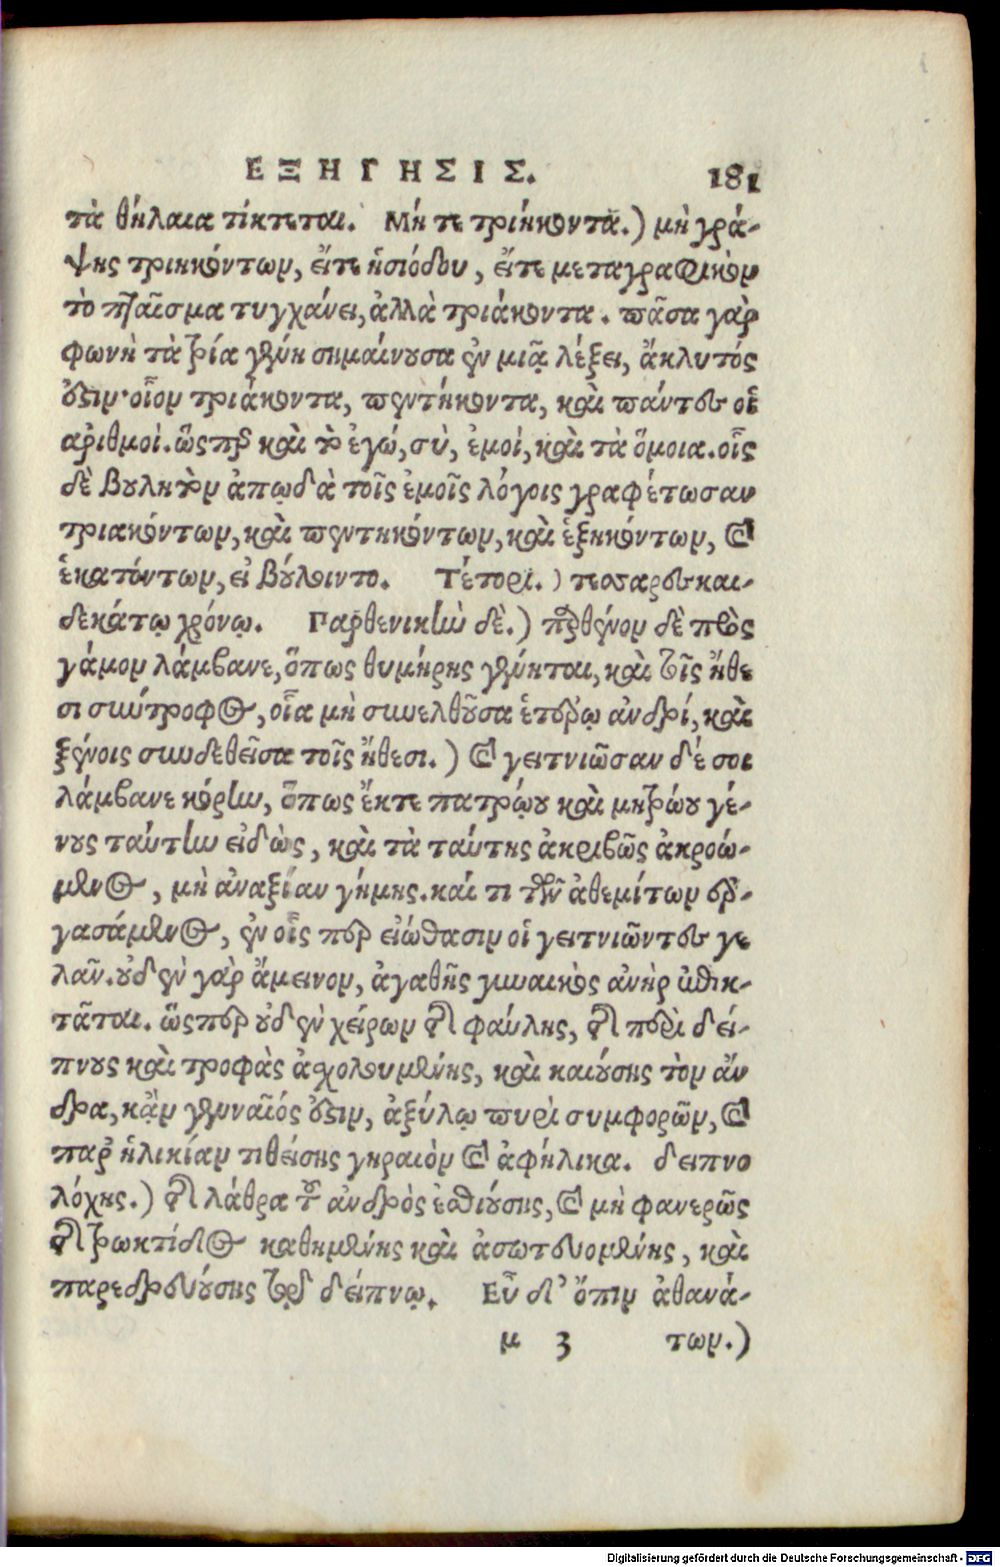 ΕΞΗΓΗΣΙΣ. 181
τὰ θήλαια τίκτεται. Μή τε τριήκοντα.) μὴ γρά-
ψης τριηκόντων, εἴτε ἡσιόδου, εἴτε μεταγραφικὸν
τὸ πταῖσμα τυγχάνει, ἀλλὰ τριάκοντα. πᾶσα γὰρ
φωνὴ τὰ τρία γένη σημαίνουσα ἐν μιᾷ λέξει, ἄκλυτός
ἐστιν· οἷον τριάκοντα, πεντήκοντα, καὶ πάντες οἱ
ἀριθμοί. ὥσπερ καὶ τὸ ἐγώ, σὺ, ἐμοί, καὶ τὰ ὅμοια. οἷς
δὲ βουλητὸν ἀπῳδὰ τοῖς ἐμοῖς λόγοις γραφέτωσαν
τριακόντων, καὶ πεντηκόντων, καὶ ἑξηκόντων, καὶ
ἑκατόντων, εἰ βούλοιντο. Τέτορι.) τεσσαρεσκαι-
δεκάτῳ χρόνῳ. Παρθενικὴν δὲ.) παρθένον δὲ πρὸς
γάμον λάμβανε, ὅπως θυμήρης γένηται, καὶ τοῖς ἤθε
σι σύντροφος, οἷα μὴ συνελθοῦσα ἑτέρῳ ἀνδρί, καὶ
ξένοις συνδεθεῖσα τοῖς ἤθεσι.) καὶ γειτνιῶσαν δέ σοι
λάμβανε κόρην, ὅπως ἔκτε πατρῴου καὶ μητρῴου γέ-
νους ταύτην εἰδὼς, καὶ τὰ ταύτης ἀκριβῶς ἀκροώ-
μενος, μὴ ἀναξίαν γήμης. καί τι τῶν ἀθεμίτων ἐρ-
γασάμενος, ἐν οἷς περ εἰώθασιν οἱ γειτνιῶντες γε
λᾶν. οὐδὲν γὰρ ἄμεινον, ἀγαθῆς γυναικὸς ἀνὴρ ἐπικ-
τᾶται. ὥσπερ οὐδὲν χείρων τῆς φαύλης, τῆς περὶ δεί-
πνους καὶ τροφὰς ἀσχολουμένης, καὶ καιούσης τὸν ἄν
δρα, κἂν γενναῖός ἐστιν, ἀξύλῳ πυρὶ συμφορῶν, καὶ
παρ ἡλικίαν τιθείσης γηραιὸν καὶ ἀφήλικα. δειπνο
λόχης.) τῆς λάθρα τοῦ ἀνδρὸς ἐσθιούσης, καὶ μὴ φανερῶς
τῆς τρωκτίδος καθημένης καὶ ἀσωτευομένης, καὶ
παρεδρευούσης τῷ δείπνῳ. Εὖ δ' ὄπιν ἀθανά-
μ 3 των.)
Digitalisierung gefördert durch die Deutsche Forschungsgemeinschaft - DFG